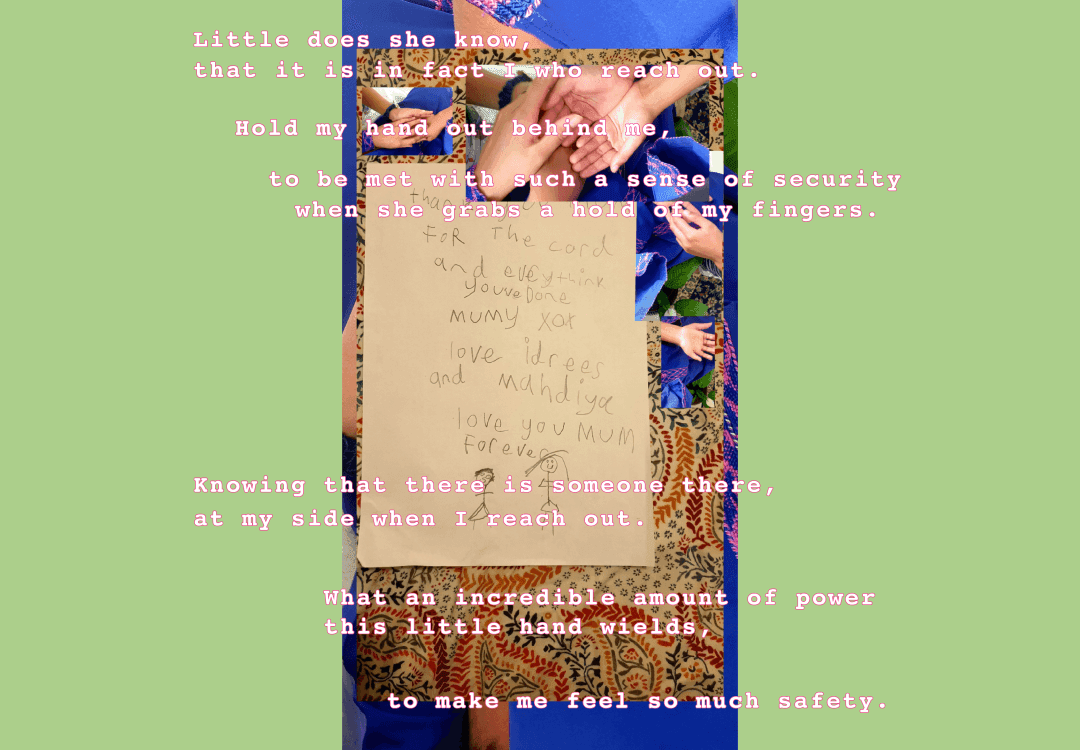 Little does she know,
that it is in fact I who reach out.
Hold my hand out behind me,
to be met with such a sense of security
when she grabs a hold of my fingers.
FOR The card
and eveythink
youve Done
MUMY xox
love idrees
and Mahdiya
love you MUM
Forever
Knowing that there is someone there,
at my side when I reach out.
What an incredible amount of power
this little hand wields,
to make me feel so much safety.